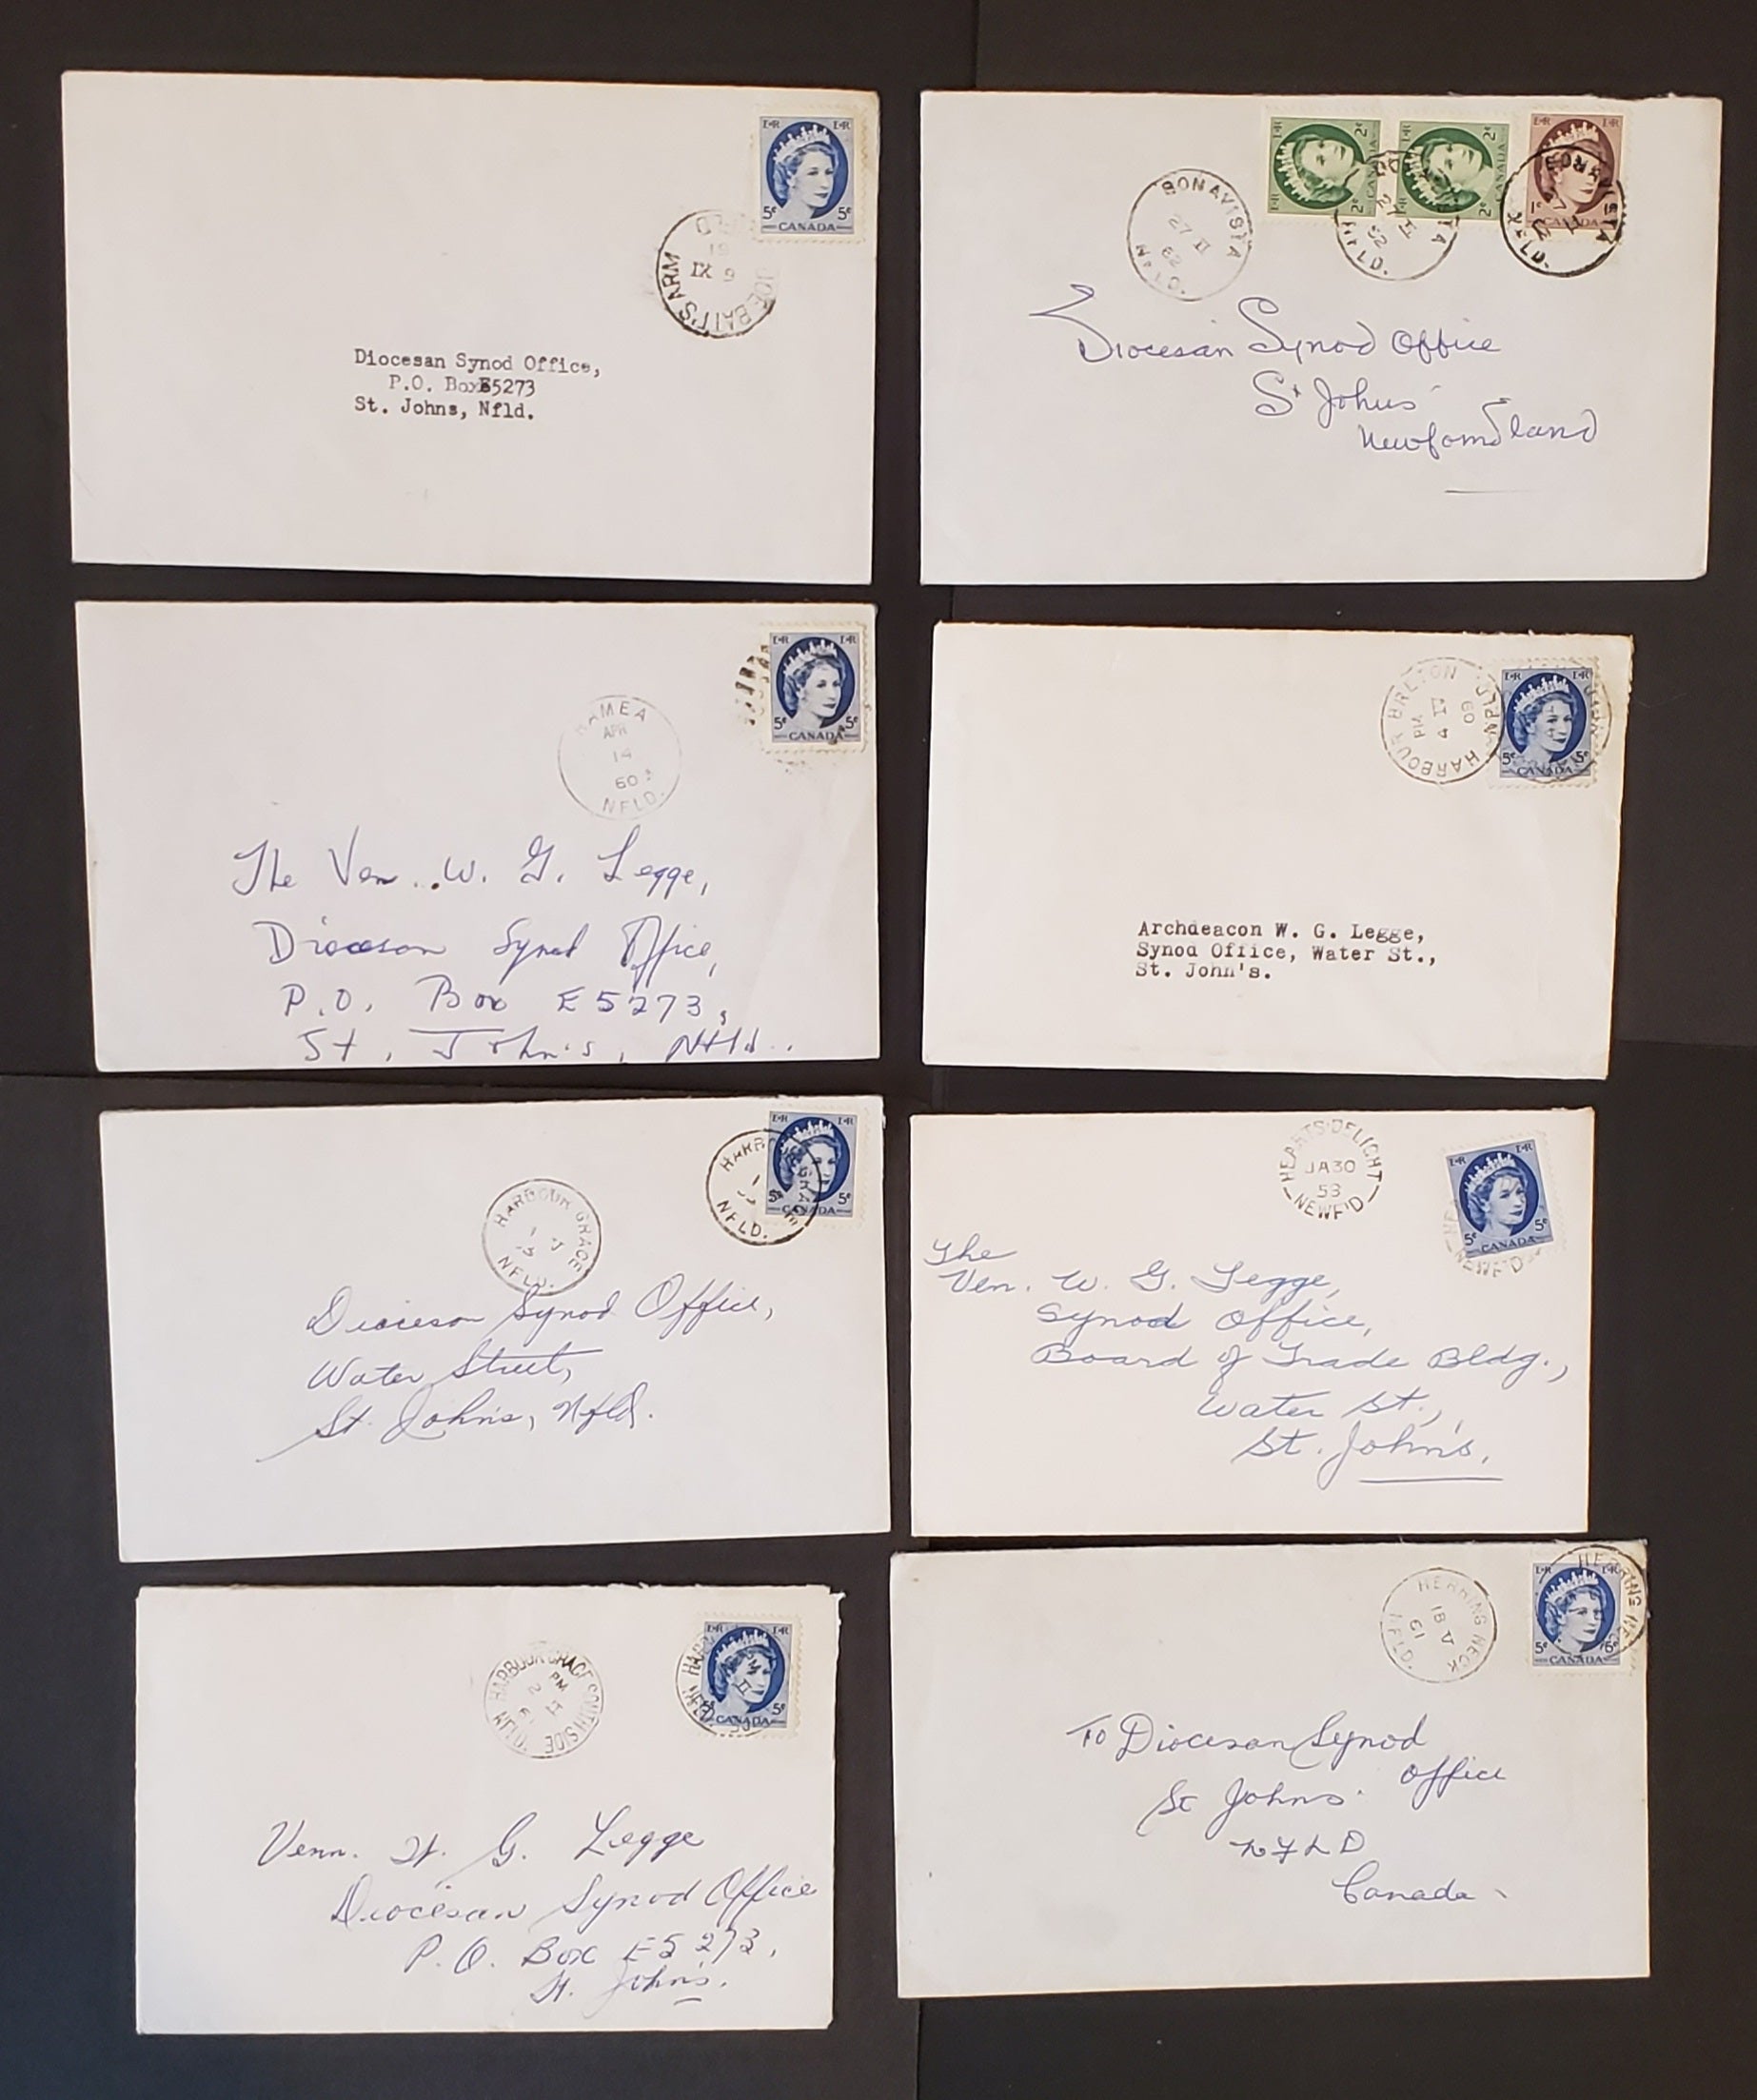 E R E R
5¢ 5¢
CANADA
JOE BATT'S ARM
9 IX
61
Diocesan Synod Office,
P.O. Box E5273
St. Johns, Nfld.
E R 2¢
2¢ CANADA
E R 2¢
2¢ CANADA
E R E R
1¢
CANADA
BONAVISTA
27 II
62
NFLD.
Diocesan Synod Office
St Johns
Newfoundland
E R E R
5¢ 5¢
CANADA
RAMEA
APR
14
60
NFLD.
The Ven. W. G. Legge,
Diocesan Synod Office,
P.O. Box E5273,
St. John's, Nfld.
E R E R
5¢ 5¢
CANADA
HARBOUR BRETON
PM
4 IV
60
NFLD.
Archdeacon W. G. Legge,
Synod Office, Water St.,
St. John's.
E R E R
5¢ 5¢
CANADA
HARBOUR GRACE
NFLD.
HARBOUR GRACE
NFLD.
Diocesan Synod Office,
Water Street,
St. John's, Nfld.
HEARTS DELIGHT
JA 30
53
NEWF'D
E R E R
5¢ 5¢
CANADA
NEWF'D
The
Ven. W. G. Legge,
Synod Office,
Board of Trade Bldg.,
Water St.,
St. John's.
E R E R
5¢ 5¢
CANADA
HARBOUR GRACE SOUTH SIDE
PM
NFLD.
Venn. W. G. Legge
Diocesan Synod Office
P.O. Box E5273,
St. John's.
E R E R
5¢ 5¢
CANADA
HERRING NECK
18 V
61
NFLD.
To Diocesan Synod
Office
St Johns.
NFLD
Canada